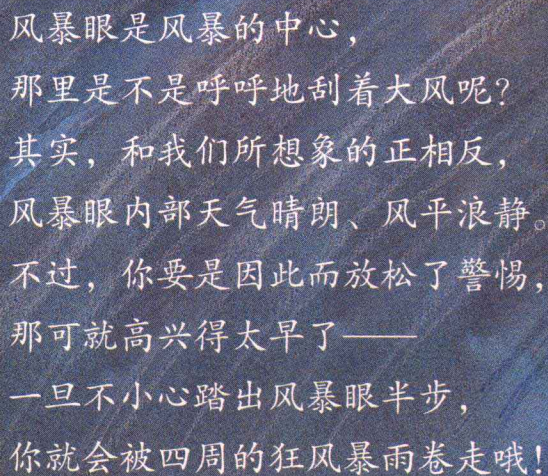 风暴眼是风暴的中心，
那里是不是呼呼地刮着大风呢？
其实，和我们所想象的正相反，
风暴眼内部天气晴朗、风平浪静。
不过，你要是因此而放松了警惕，
那可就高兴得太早了——
一旦不小心踏出风暴眼半步，
你就会被四周的狂风暴雨卷走哦！